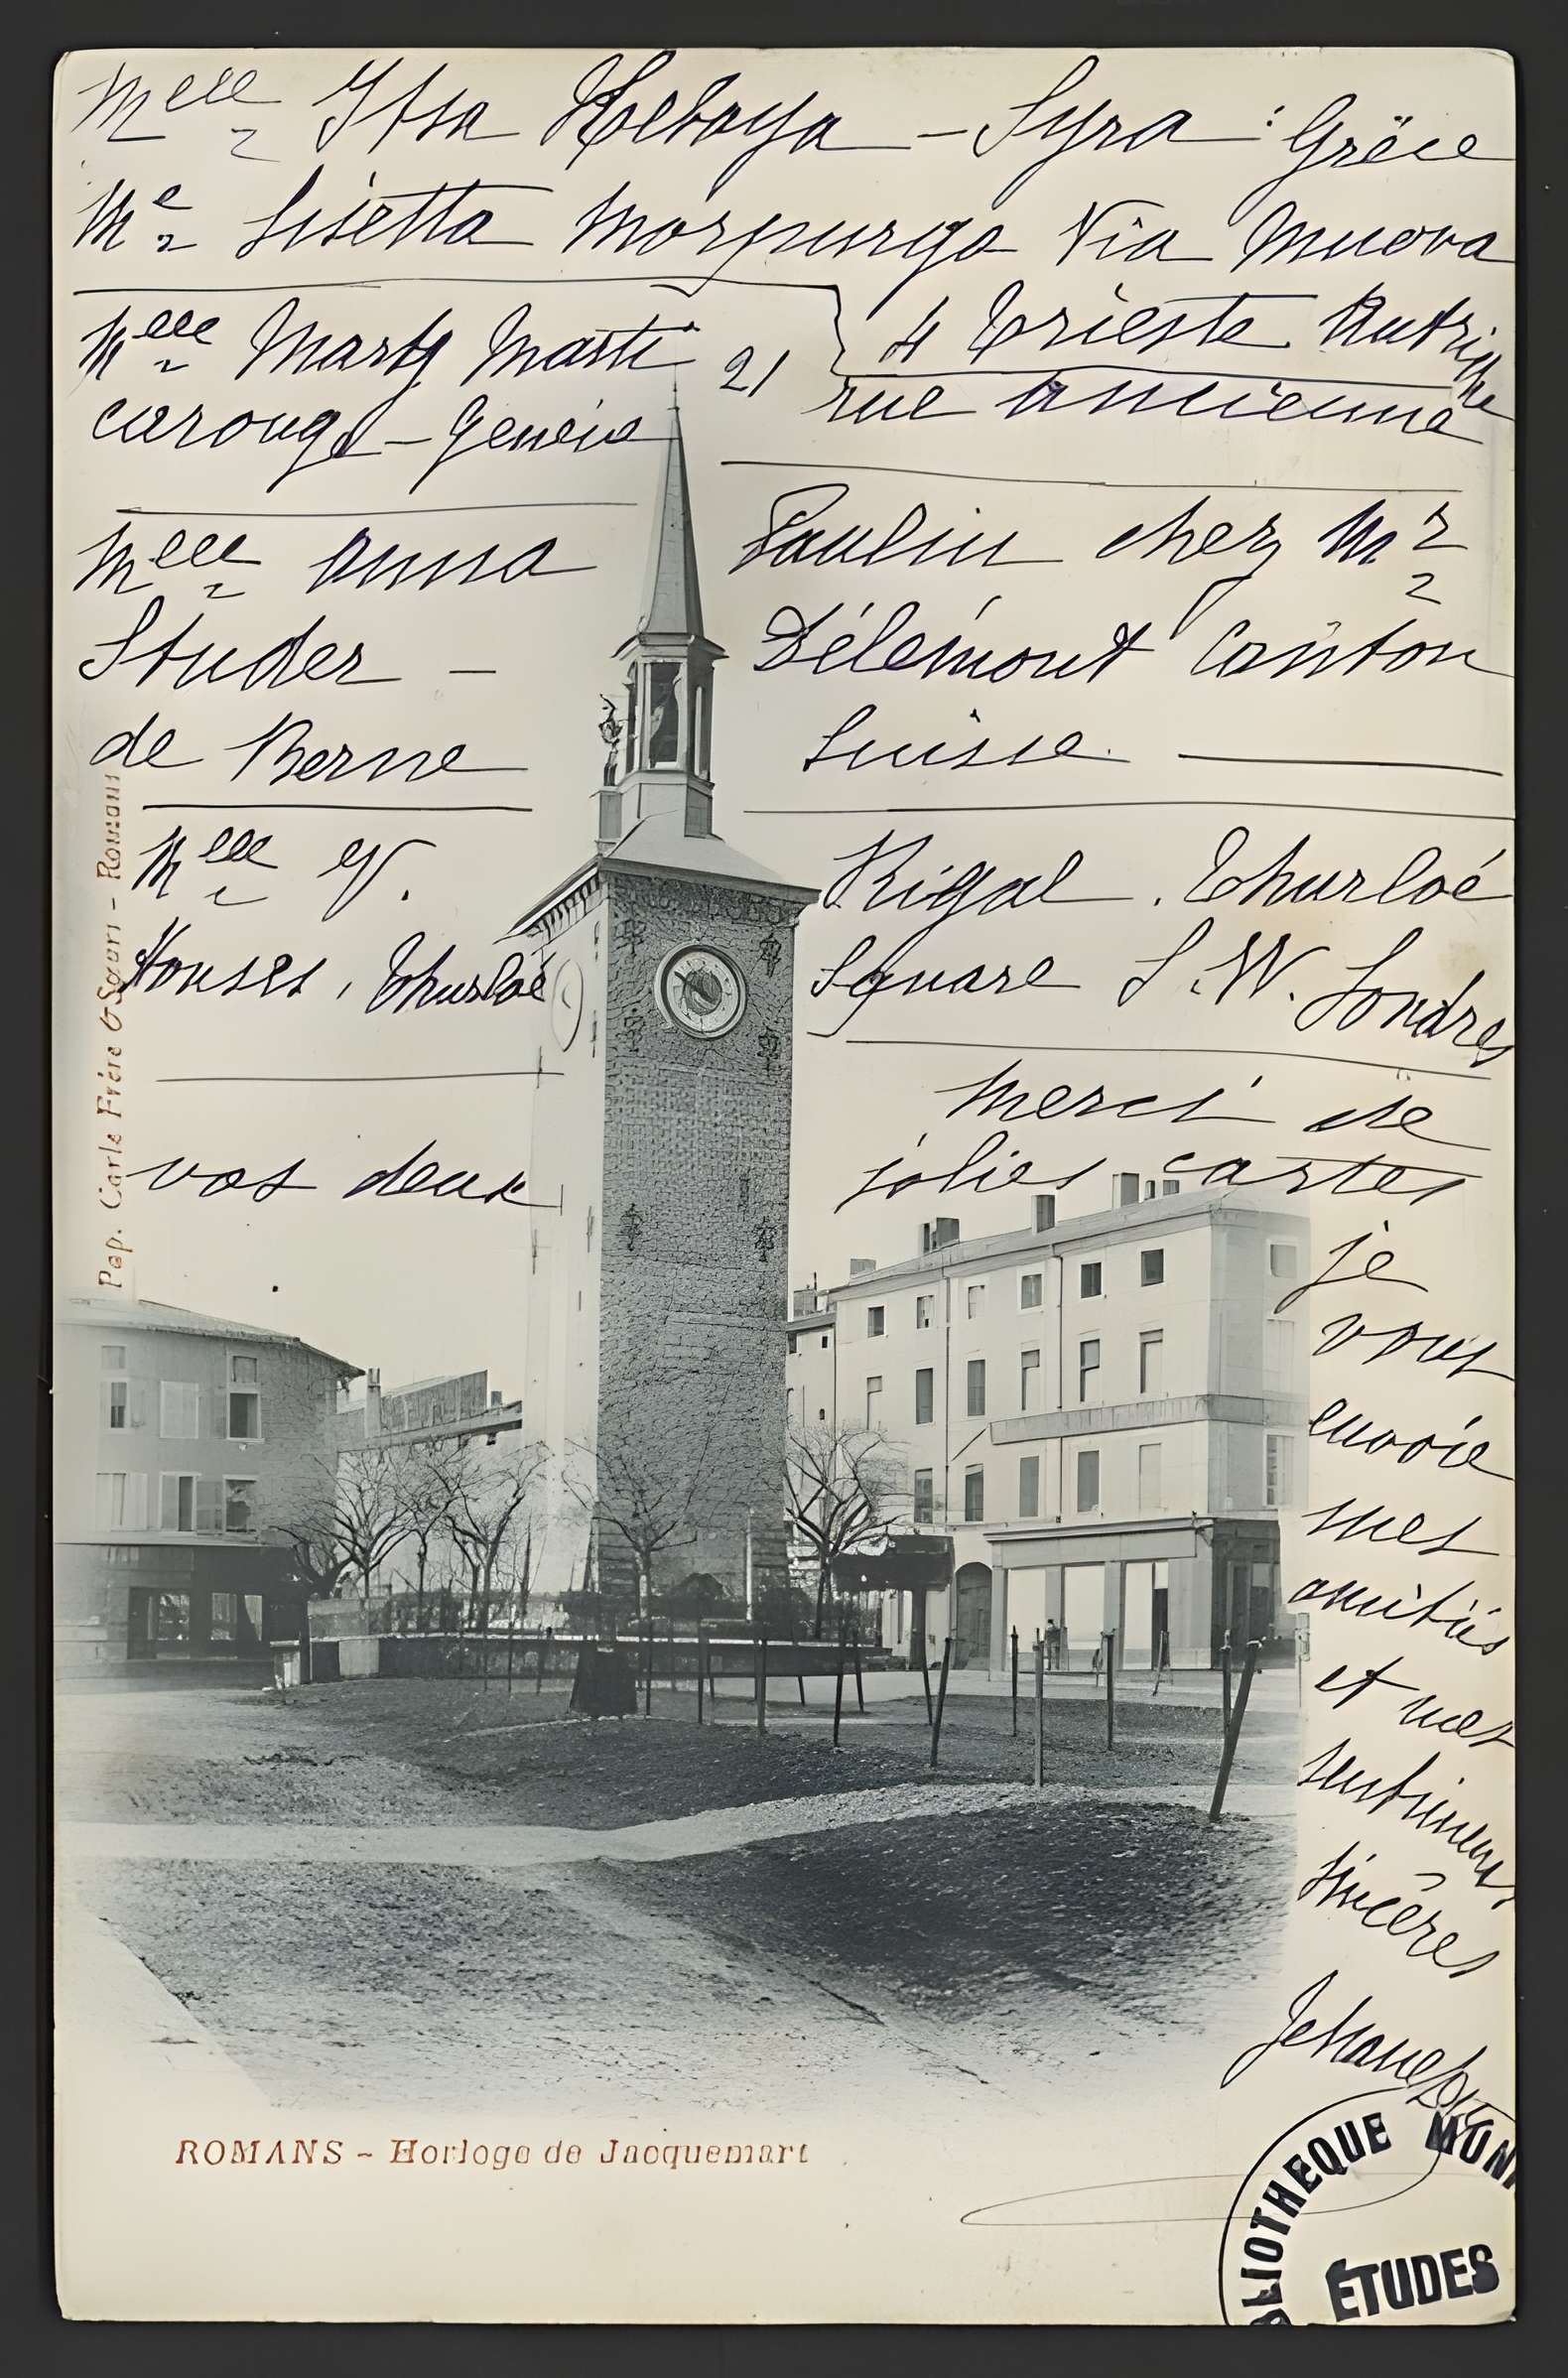 Melle Itsa Heboya - Syra : Grèce
Me Lisetta Morpurgo Via Nuova
4 Trieste Autriche
Melle Marty Marti 21 rue ancienne
Carouge - Genève
Melle Anna Paulin chez Mr
Studer - Délémont Canton
de Berne Suisse.
Melle V. Rigal. Thurloé
Houses, Thurloé Square S.W. Londres
Merci de
vos deux jolies cartes
je
vous
envoie
mes
amitiés
et mes
sentiments
sincères
Jehanne
Pap. Carle Frère & Sœurs - Romans
ROMANS - Horloge de Jacquemart
BLIOTHEQUE MUNI
ÉTUDES